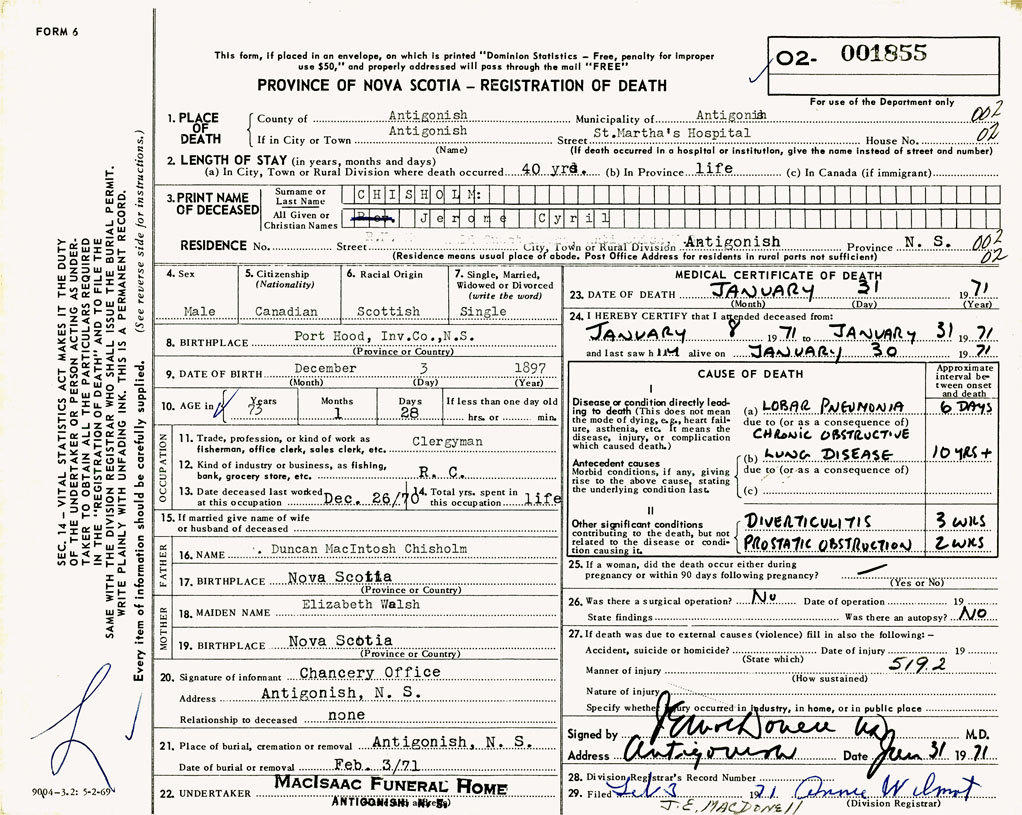 FORM 6
This form, if placed in an envelope, on which is printed "Dominion Statistics – Free, penalty for improper
use $50," and properly addressed will pass through the mail "FREE"
PROVINCE OF NOVA SCOTIA – REGISTRATION OF DEATH
02- 001855
For use of the Department only
1. PLACE OF DEATH
County of Antigonish Municipality of Antigonish 002
If in City or Town Antigonish Street St.Martha's Hospital House No. 02
(Name) (If death occurred in a hospital or institution, give the name instead of street and number)
2. LENGTH OF STAY (in years, months and days)
(a) In City, Town or Rural Division where death occurred 40 yrs. (b) In Province life (c) In Canada (if immigrant)
3. PRINT NAME OF DECEASED
Surname or Last Name CHISHOLM:
All Given or Christian Names Rev. Jerome Cyril
RESIDENCE No. Street City, Town or Rural Division Antigonish Province N. S. 002
(Residence means usual place of abode. Post Office Address for residents in rural parts not sufficient) 02
4. Sex
Male
5. Citizenship
(Nationality)
Canadian
6. Racial Origin
Scottish
7. Single, Married,
Widowed or Divorced
(write the word)
Single
8. BIRTHPLACE Port Hood, Inv.Co.,N.S.
(Province or Country)
9. DATE OF BIRTH December 3 1897
(Month) (Day) (Year)
10. AGE in Years Months Days If less than one day old
73 1 28 hrs. or min.
OCCUPATION
11. Trade, profession, or kind of work as
fisherman, office clerk, sales clerk, etc. Clergyman
12. Kind of industry or business, as fishing,
bank, grocery store, etc. R. C.
13. Date deceased last worked
at this occupation Dec. 26/70
14. Total yrs. spent in
this occupation life
15. If married give name of wife
or husband of deceased
FATHER
16. NAME Duncan MacIntosh Chisholm
17. BIRTHPLACE Nova Scotia
(Province or Country)
MOTHER
18. MAIDEN NAME Elizabeth Walsh
19. BIRTHPLACE Nova Scotia
(Province or Country)
20. Signature of informant Chancery Office
Address Antigonish, N. S.
Relationship to deceased none
21. Place of burial, cremation or removal Antigonish, N. S.
Date of burial or removal Feb. 3/71
22. UNDERTAKER MacIsaac Funeral Home
ANTIGONISH, N. S.
MEDICAL CERTIFICATE OF DEATH
23. DATE OF DEATH JANUARY 31 1971
(Month) (Day) (Year)
24. I HEREBY CERTIFY that I attended deceased from:
JANUARY 8 1971 to JANUARY 31 1971
and last saw hIM alive on JANUARY 30 1971
CAUSE OF DEATH
Approximate
interval be-
tween onset
and death
I
Disease or condition directly lead-
ing to death (This does not mean
the mode of dying, e.g., heart fail-
ure, asthenia, etc. It means the
disease, injury, or complication
which caused death.)
(a) LOBAR PNEUMONIA 6 DAYS
due to (or as a consequence of)
CHRONIC OBSTRUCTIVE
Antecedent causes
Morbid conditions, if any, giving
rise to the above cause, stating
the underlying condition last.
(b) LUNG DISEASE 10 YRS +
due to (or as a consequence of)
(c)
II
Other significant conditions
contributing to the death, but not
related to the disease or condi-
tion causing it.
DIVERTICULITIS 3 WKS
PROSTATIC OBSTRUCTION 2 WKS
25. If a woman, did the death occur either during
pregnancy or within 90 days following pregnancy?
(Yes or No)
26. Was there a surgical operation? No Date of operation 19
State findings Was there an autopsy? NO
27. If death was due to external causes (violence) fill in also the following: –
Accident, suicide or homicide? Date of injury 19
(State which) 519.2
Manner of injury
(How sustained)
Nature of injury
Specify whether injury occurred in industry, in home, or in public place
Signed by M.D.
Address Antigonish Date Jan 31 1971
28. Division Registrar's Record Number
29. Filed Feb 3 1971 Annie Wilmot
J.E. MACDONELL (Division Registrar)
SEC. 14 – VITAL STATISTICS ACT MAKES IT THE DUTY
OF THE UNDERTAKER OR PERSON ACTING AS UNDER-
TAKER TO OBTAIN ALL THE PARTICULARS REQUIRED
IN THE "REGISTRATION OF DEATH" AND TO FILE THE
SAME WITH THE DIVISION REGISTRAR WHO SHALL ISSUE THE BURIAL PERMIT.
WRITE PLAINLY WITH UNFADING INK. THIS IS A PERMANENT RECORD.
Every item of information should be carefully supplied. (See reverse side for instructions.)
9004-3.2: 5-2-69